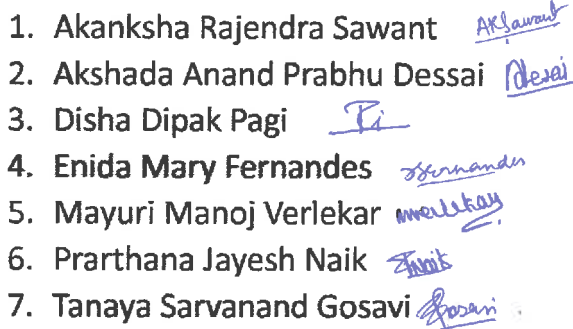 1. Akanksha Rajendra Sawant AKSawant
2. Akshada Anand Prabhu Dessai Desai
3. Disha Dipak Pagi
4. Enida Mary Fernandes Fernandes
5. Mayuri Manoj Verlekar mverlekar
6. Prarthana Jayesh Naik Naik
7. Tanaya Sarvanand Gosavi Gosavi